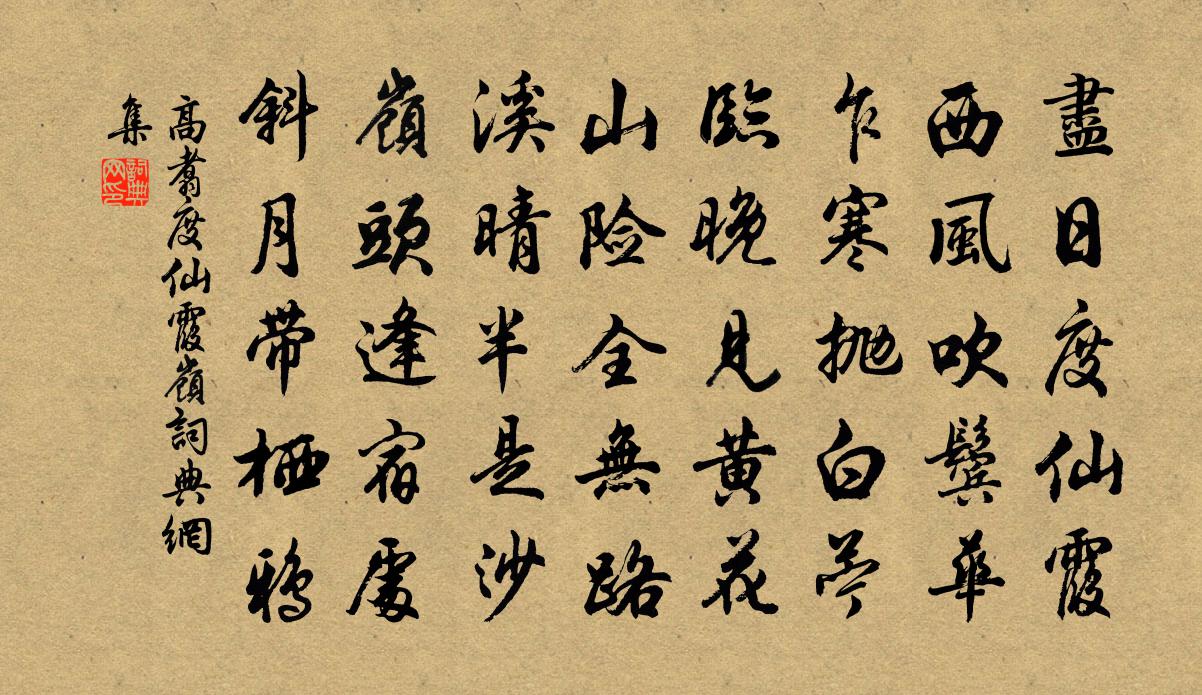 盡日度仙霞
西風吹鬢華
乍寒拋白苧
臨晚見黃花
山險全無路
溪晴半是沙
嶺頭逢宿處
斜月帶栖鴉
高翥度仙霞嶺詞典網
集
詞典
网印